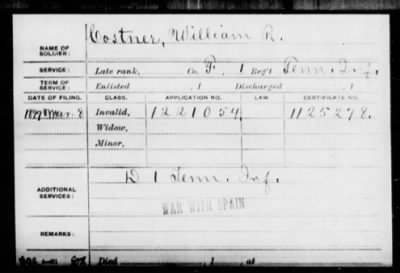 Costner, William R.
NAME OF SOLDIER:
SERVICE: Late rank, Co. F. 1 Reg't Tenn. Inf.
TERM OF SERVICE: Enlisted , 1 Discharged , 1
DATE OF FILING. CLASS. APPLICATION NO. LAW. CERTIFICATE NO.
1899 Mar. 8 Invalid, 1221054 1125278.
Widow,
Minor,
ADDITIONAL SERVICES: D 1 Tenn. Inf.
WAR WITH SPAIN
REMARKS:
Died , 1 , at